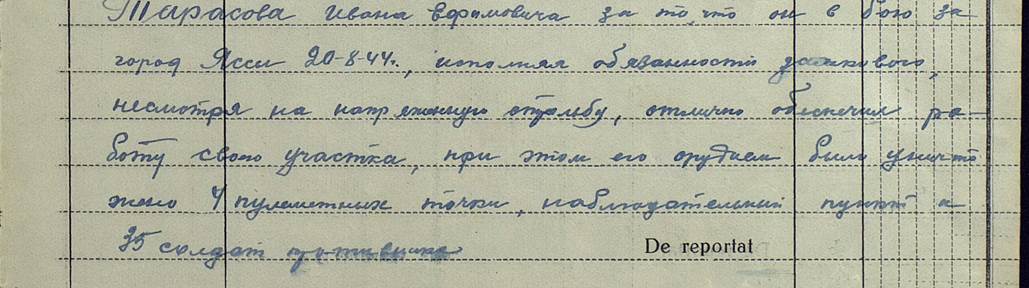 Тарасова Ивана Ефимовича за то, что он в бою за
город Яссы 20-8-44г., исполняя обязанности замкового,
несмотря на напряженную стрельбу, отлично обеспечил ра-
боту своего участка, при этом его орудием было уничто
жено 4 пулеметных точки, наблюдательный пункт и
35 солдат противника
De reportat